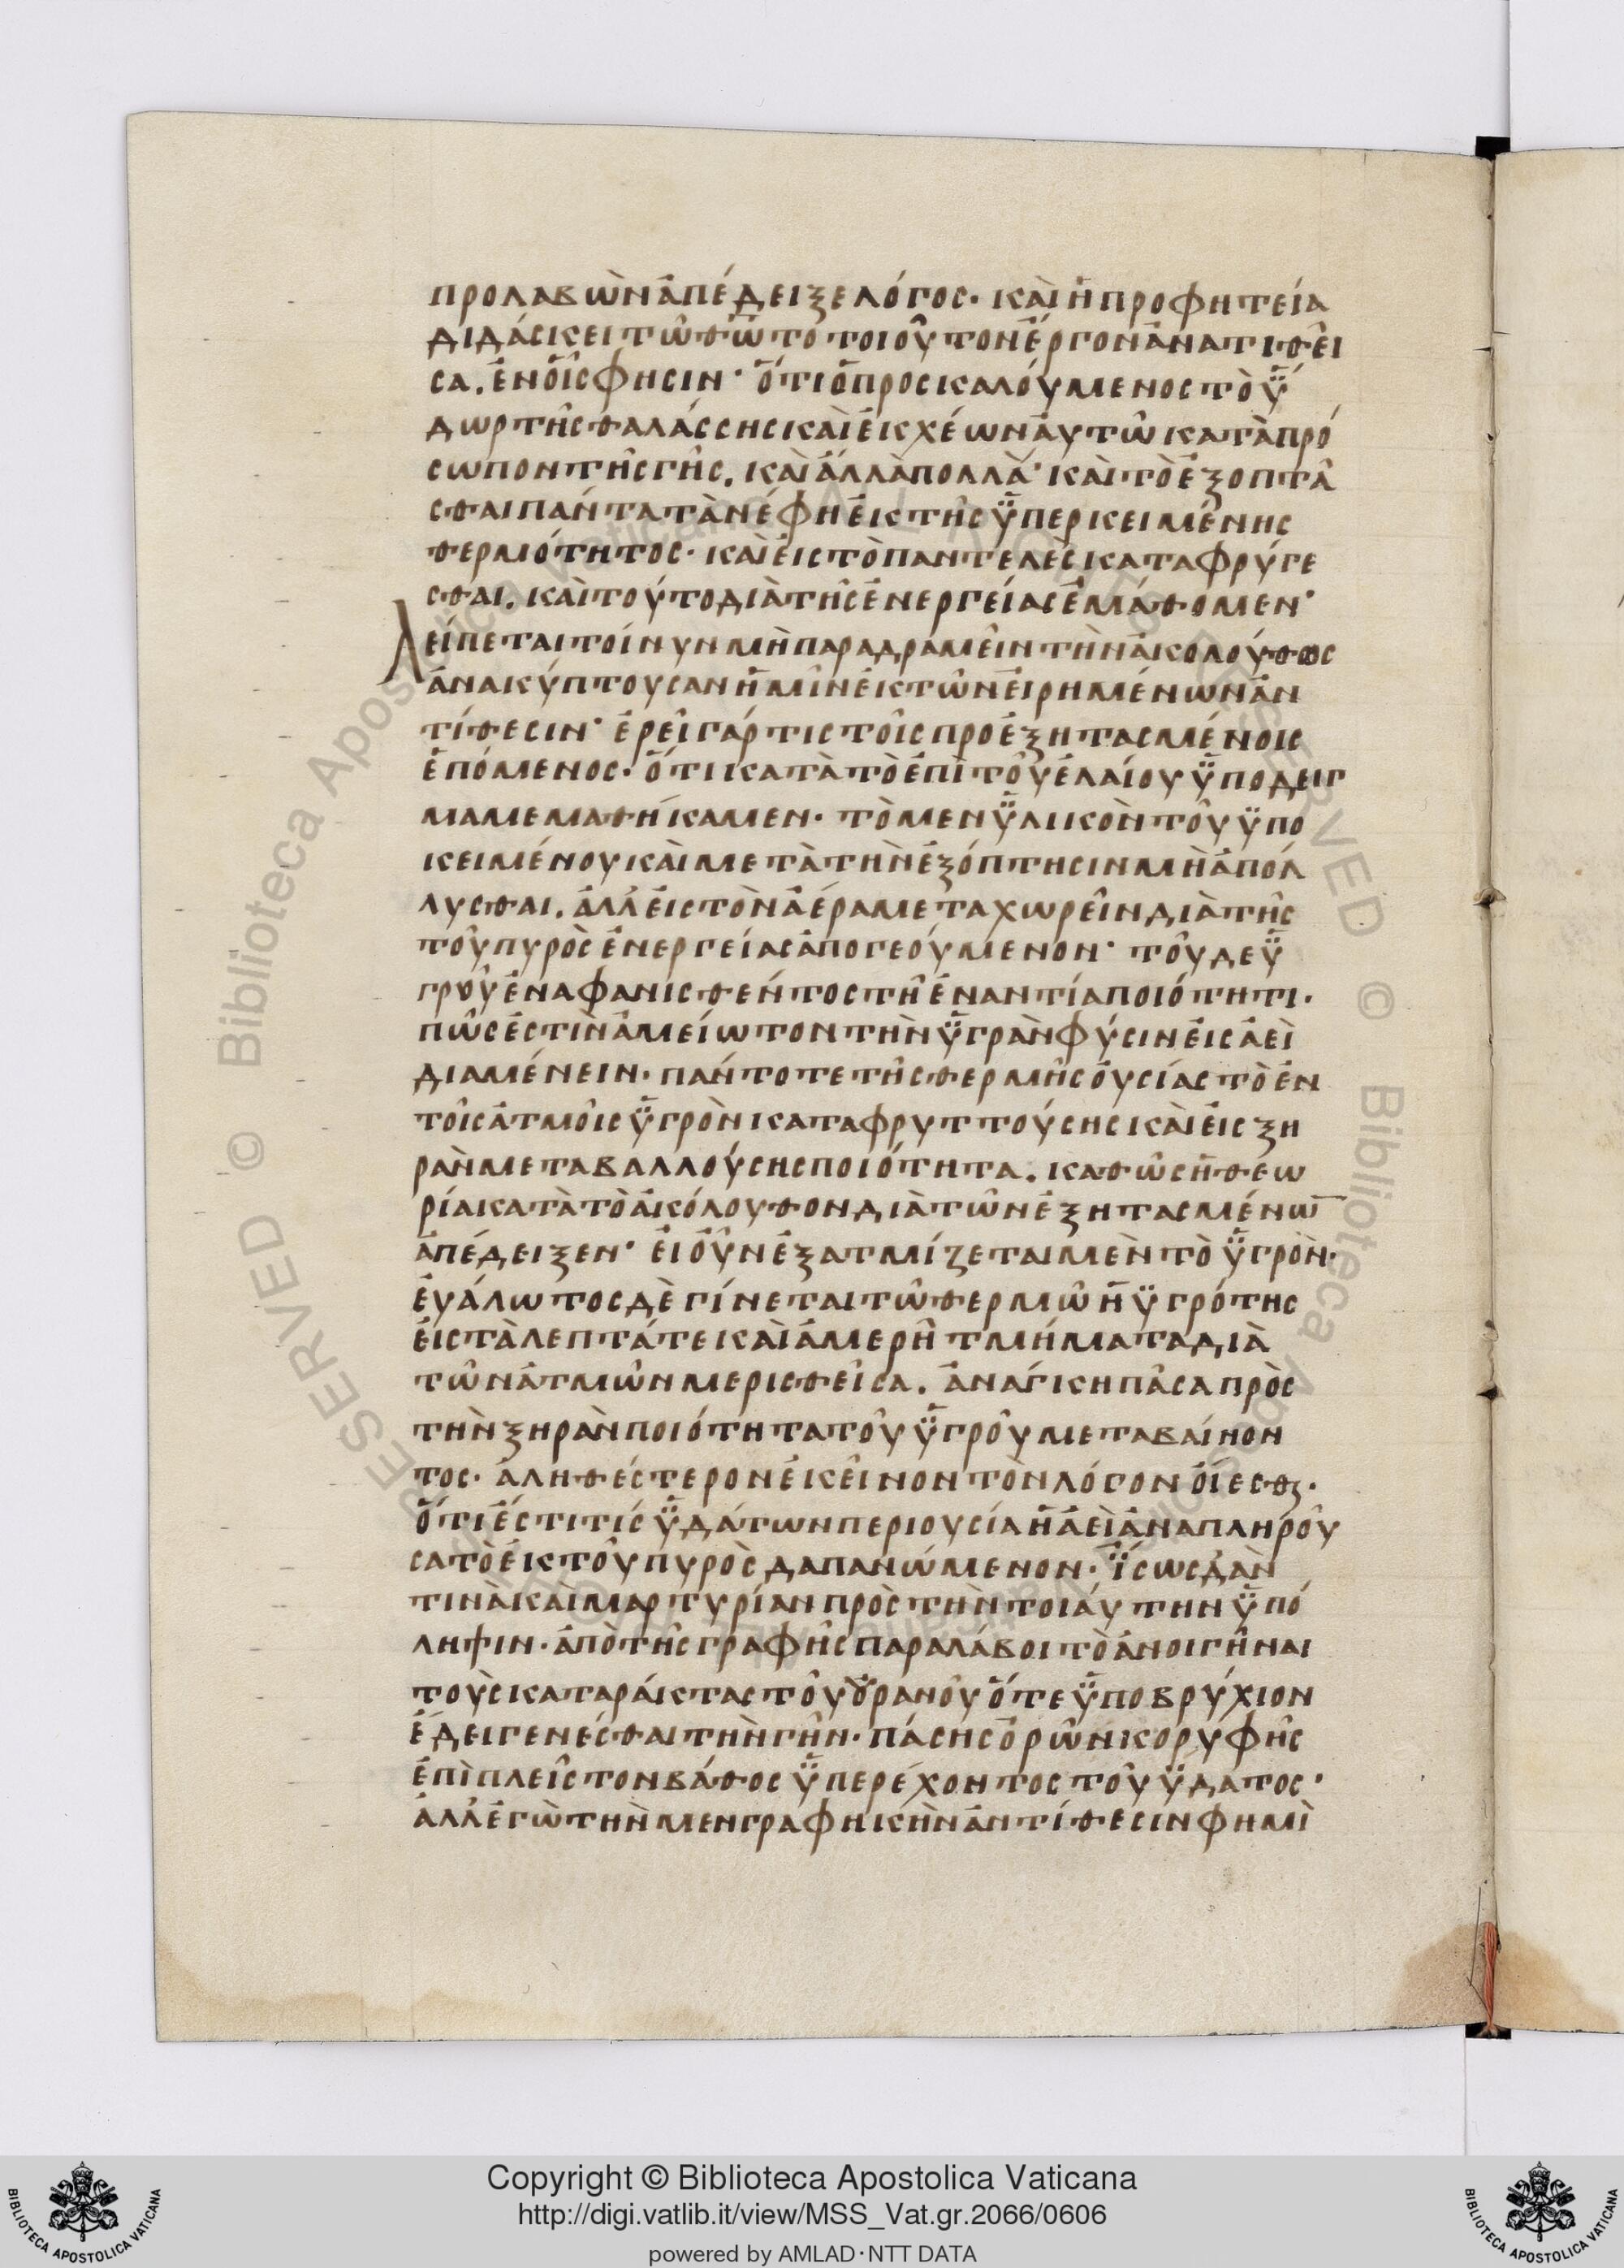 προλαβὼν ἀπέδειξε λόγος· καὶ ἡ προφητεία
διδάσκει τῶ θω τὸ τοιοῦτον ἔργον ἀνατιθεῖ
σα. ἐν οἷς φησιν· ὅτι ὁ προσκαλούμενος τὸ ὕ
δωρ τῆς θαλάσσης καὶ ἐκχέων αὐτῶ κατὰ πρό
σωπον τῆς γῆς. καὶ ἄλλα πολλὰ· καὶ τὸ ἐξοπτᾶ
σθαι πάντα τὰ νέφη ἐκ τῆς ὑπερκειμένης
θερμότητος· καὶ εἰς τὸ παντελὲς καταφρύγε
σθαι. καὶ τοῦτο διὰ τῆς ἐνεργείας ἐμάθομεν·
Λείπεται τοίνυν μὴ παραδραμεῖν τὴν ἀκολούθως
ἀνακύπτουσαν ἡμῖν ἐκ τῶν εἰρημένων ἀν
τίθεσιν· ἐρεῖ γάρ τις τοῖς προεξητασμένοις
ἑπόμενος· ὅτι κατὰ τὸ ἐπὶ τοῦ ἐλαίου ὑπόδειγ
μα μεμαθήκαμεν· τὸ μεν ὑλικὸν τοῦ ὑπο
κειμένου καὶ μετὰ τὴν ἐξόπτησιν μὴ ἀπόλ
λυσθαι. ἀλλ' εἰς τὸν ἀέρα μεταχωρεῖν διὰ τῆς
τοῦ πυρὸς ἐνεργείας ἀπογεούμενον· τοῦ δε ὑ
γροῦ ἐναφανισθέντος τῆ ἐναντία ποιότητι·
πῶς ἐστὶν ἀμείωτον τὴν ὑγρὰν φύσιν εἰς ἀεὶ
διαμένειν· πάντοτε τῆς θερμῆς οὐσίας τὸ ἐν
τοῖς ἀτμοῖς ὑγρὸν καταφρυττούσης καὶ εἰς ξη
ρὰν μεταβαλλούσης ποιότητα. καθὼς ἡ θεω
ρία κατὰ τὸ ἀκόλουθον διὰ τῶν ἐξητασμένω̅
ἀπέδειξεν· εἰ οὖν ἐξατμίζεται μὲν τὸ ὑγρὸν·
ἐυάλωτος δὲ γίνεται τῶ θερμῶ ἡ ὑγρότης
εἰς τὰ λεπτά τε καὶ ἀμερῆ τμήματα διὰ
τῶν ἀτμῶν μερισθεῖσα. ἀνάγκη πᾶσα πρὸς
τὴν ξηρὰν ποιότητα τοῦ ὑγροῦ μεταβαίνον
τος· ἀληθέστερον ἐκεῖνον τὸν λόγον οἴεσθ·
ὅτι ἐστί τις ὑδάτων περιουσία ἡ ἀεὶ ἀναπληροῦ
σα τὸ ἐκ τοῦ πυρὸς δαπανώμενον· ἴσως δ' ἀν
τινὰ καὶ μαρτυρίαν πρὸς τὴν τοιαύτην ὑπό
ληψιν· ἀπὸ τῆς γραφῆς παραλάβοι τὸ ἀνοιγῆναι
τοὺς καταράκτας τοῦ οὐρανοῦ ὅτε ὑποβρύχιον
ἔδει γενέσθαι τὴν γῆν· πάσης ὀρῶν κορυφῆς
ἐπὶ πλεῖστον βάθος ὑπερέχοντος τοῦ ὕδατος·
ἀλλ' ἐγὼ τὴν μεν γραφηκὴν ἀντίθεσιν φημὶ
Copyright © Biblioteca Apostolica Vaticana
http://digi.vatlib.it/view/MSS_Vat.gr.2066/0606
powered by AMLAD·NTT DATA